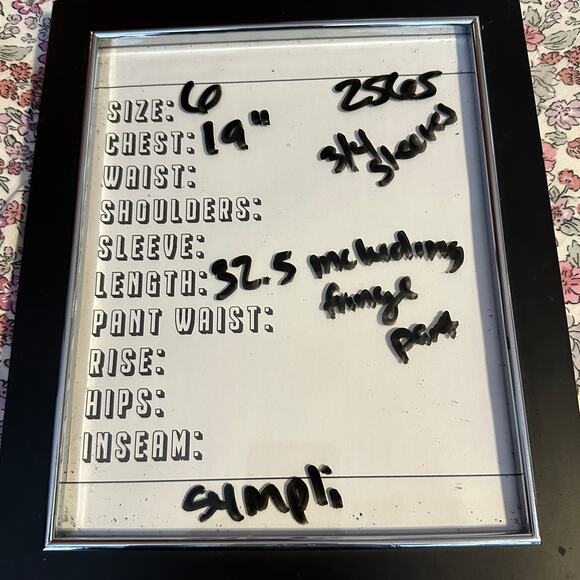 SIZE: 6 2565
CHEST: 19" 3/4 sleeves
WAIST:
SHOULDERS:
SLEEVE:
LENGTH: 32.5 including fringe part
PANT WAIST:
RISE:
HIPS:
INSEAM:
sympli